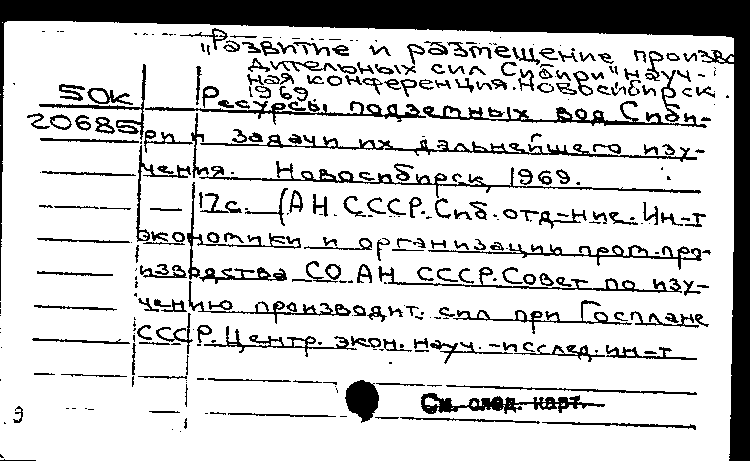 „Развитие и размещение произво
дительных сил Сибири" науч-
ная конференция. Новосибирск.
1969
50к Ресурсы подземных вод Сиби-
20685 ри и задачи их дальнейшего изу-
чения. Новосибирск, 1969.
— 17с. (АН СССР. Сиб. отд-ние. Ин-т
экономики и организации пром. про-
изводства СО АН СССР. Совет по изу-
чению производит. сил при Госплане
СССР. Центр. экон. науч.-исслед. ин-т
См. след. карт.
9